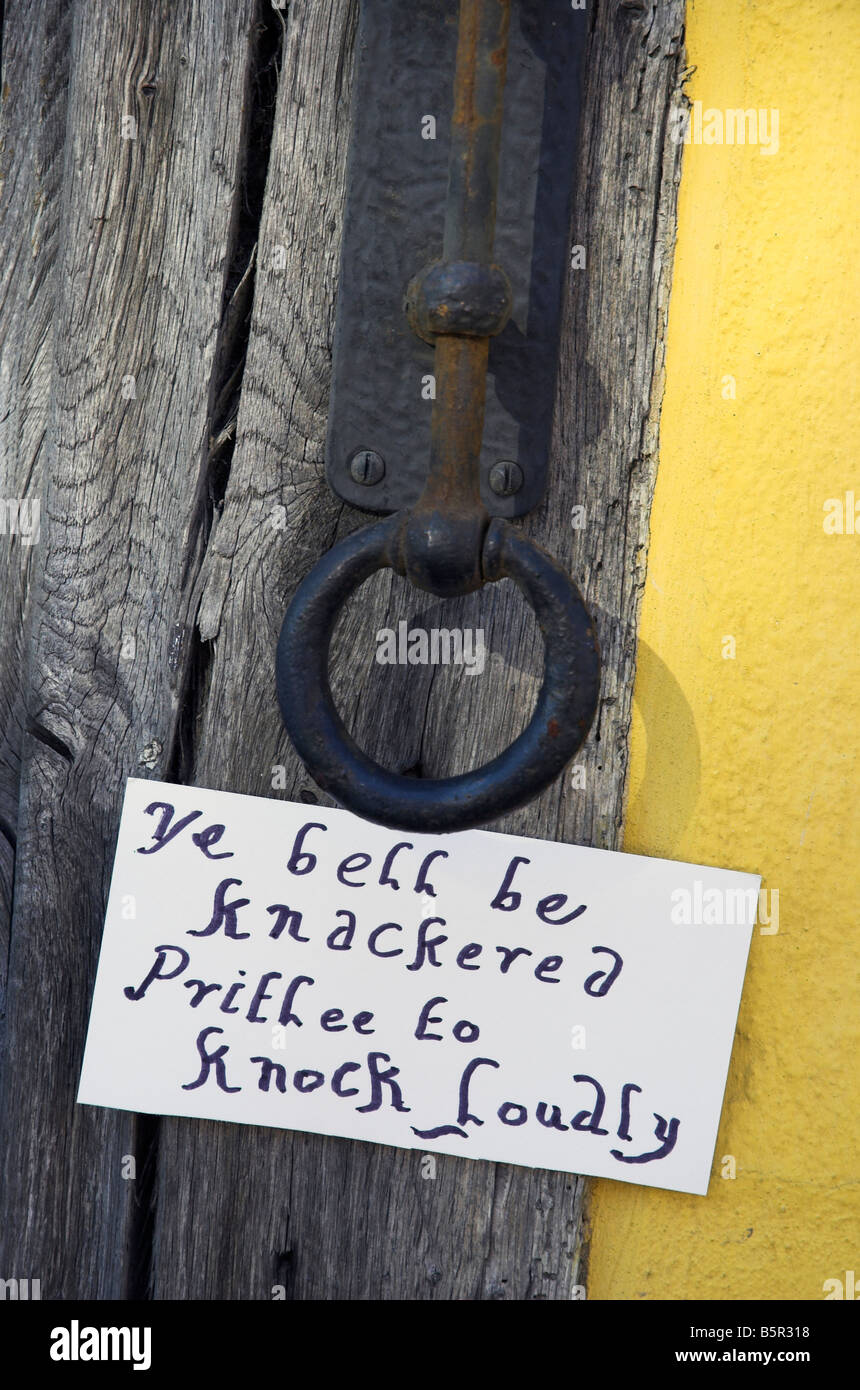 Ye bell be
knackered
Prithee to
knock Loudly
alamy
Image ID: B5R318
www.alamy.com